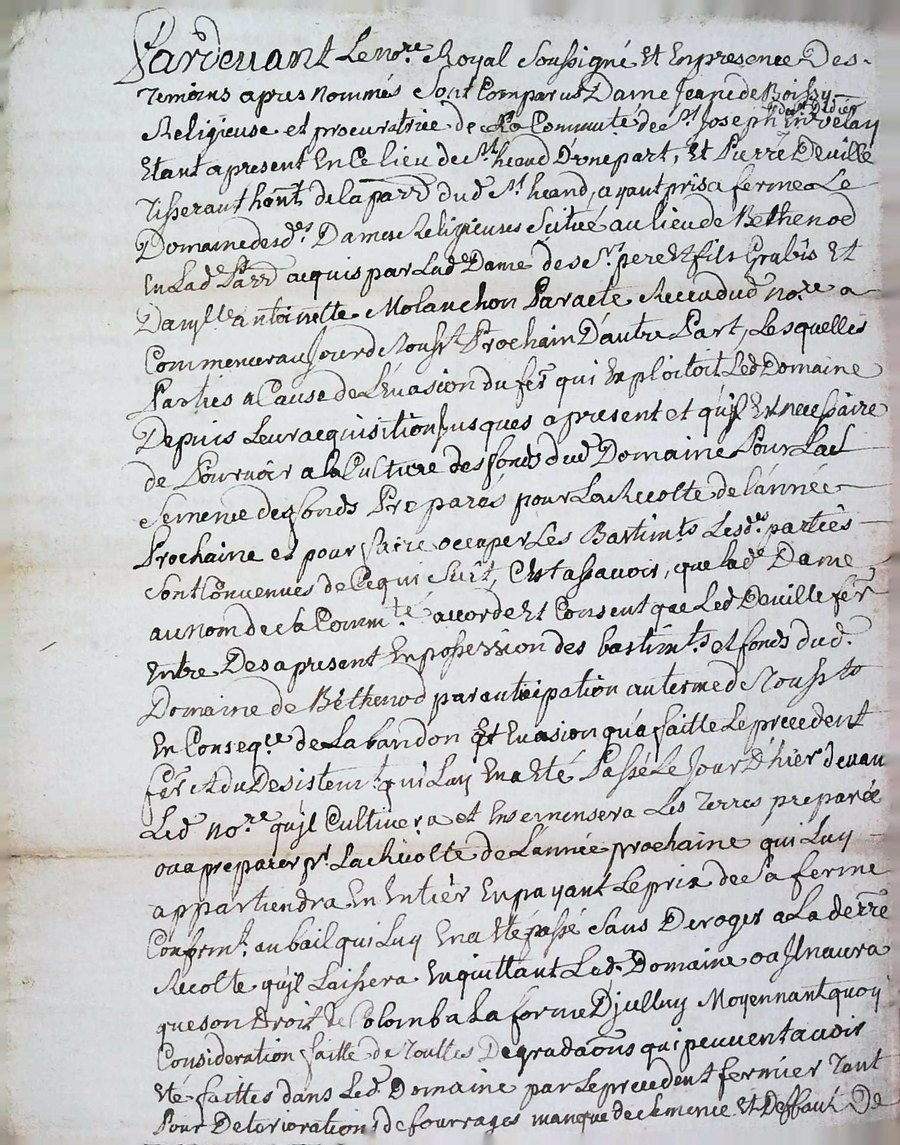 Pardevant Le no.re Royal Soussigné Et En presence Des
Temoins apres nommés Sont Comparus Dame Jeane de Boissy
Religieuse et procuratrice de La Commu.té de S.t Joseph En velay
Etant a present En Ce lieu de S.t heand D'une part, Et Pierre Deville
Tisserant ha͠nt de la parr. dud. S.t heand, ayant pris a ferme Le
Domaine desd.es Dames Religieuses Scitué au lieu de Bethenod
En Lad.e Parr. acquis par Lad.e Dame de s.rs pere Et fils Grabis Et
Dam.lle antoinette Molanchon Par acte Receu dud. no.re a
Commencer au Jour de Touss.t Prochain D'autre Part, Lesquelles
Parties a Cause de L'Evasion du fer.r qui Exploitoit Led. Domaine
Depuis Leur acquisition Jusques a present et qu'jl Est necessaire
de Pourvoir a la Culture des fonds dud. Domaine Pour La
Semence des fonds Preparés pour La Recolte de L'année
Prochaine et pour faire occuper Les Bastim.ts Lesd.es parties
Sont Convenues de Ce qui Suit, C'Est assavoir, que lad.e Dame
au Nom de La Comm.té accorde Et Consent que Led. Deville fer.r
Entre Des a present En possession des bastim.ts et fonds dud.
Domaine de Bethenod par anticipation au terme de Touss.t
En Conseq.ce de Labandon Et Evasion qu'a faitte Le precedent
fer.r Et du Desistem.t qui Luy En a Eté Passé Le Jour D'hier devan
Led. no.re qu'jl Cultivera et Ensemensera Les Terres preparée
ou a preparer p.r La Recolte de L'année prochaine qui Luy
appartiendra En Entier En payant Le prix de Sa ferme
Conform.t au bail qui Luy En a Eté passé Sans Deroger a La derre
Recolte qu'jl Laissera En quittant Led. Domaine ou Jl n'aura
que son Droit de Colon a La forme D'jcelluy Moyennant quoy
Consideration faitte de Touttes Degrada͠ons qui peuvent avoir
Eté faittes dans Led. Domaine par Le precedent fermier Tant
Pour Deteriorations de fourrages manque de Semence Et Deffaut De